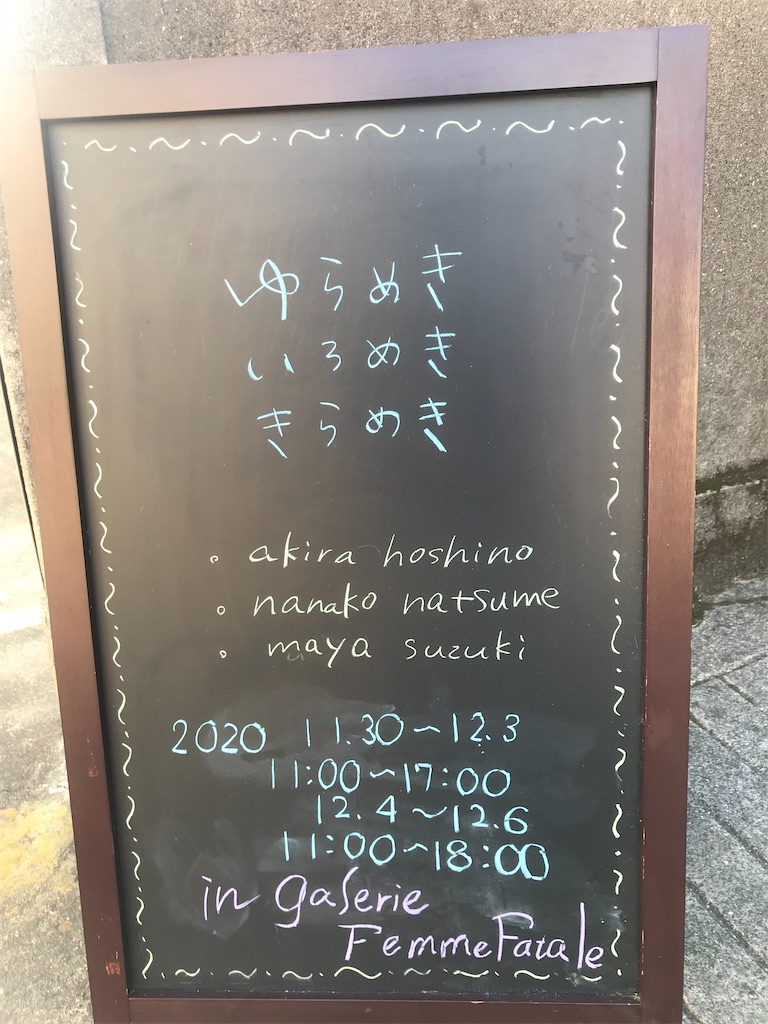 ゆらめき
いろめき
きらめき
。akira hoshino
。nanako natsume
。maya suzuki
2020 11.30〜12.3
11:00〜17:00
12.4〜12.6
11:00〜18:00
in galerie
FemmeFatale